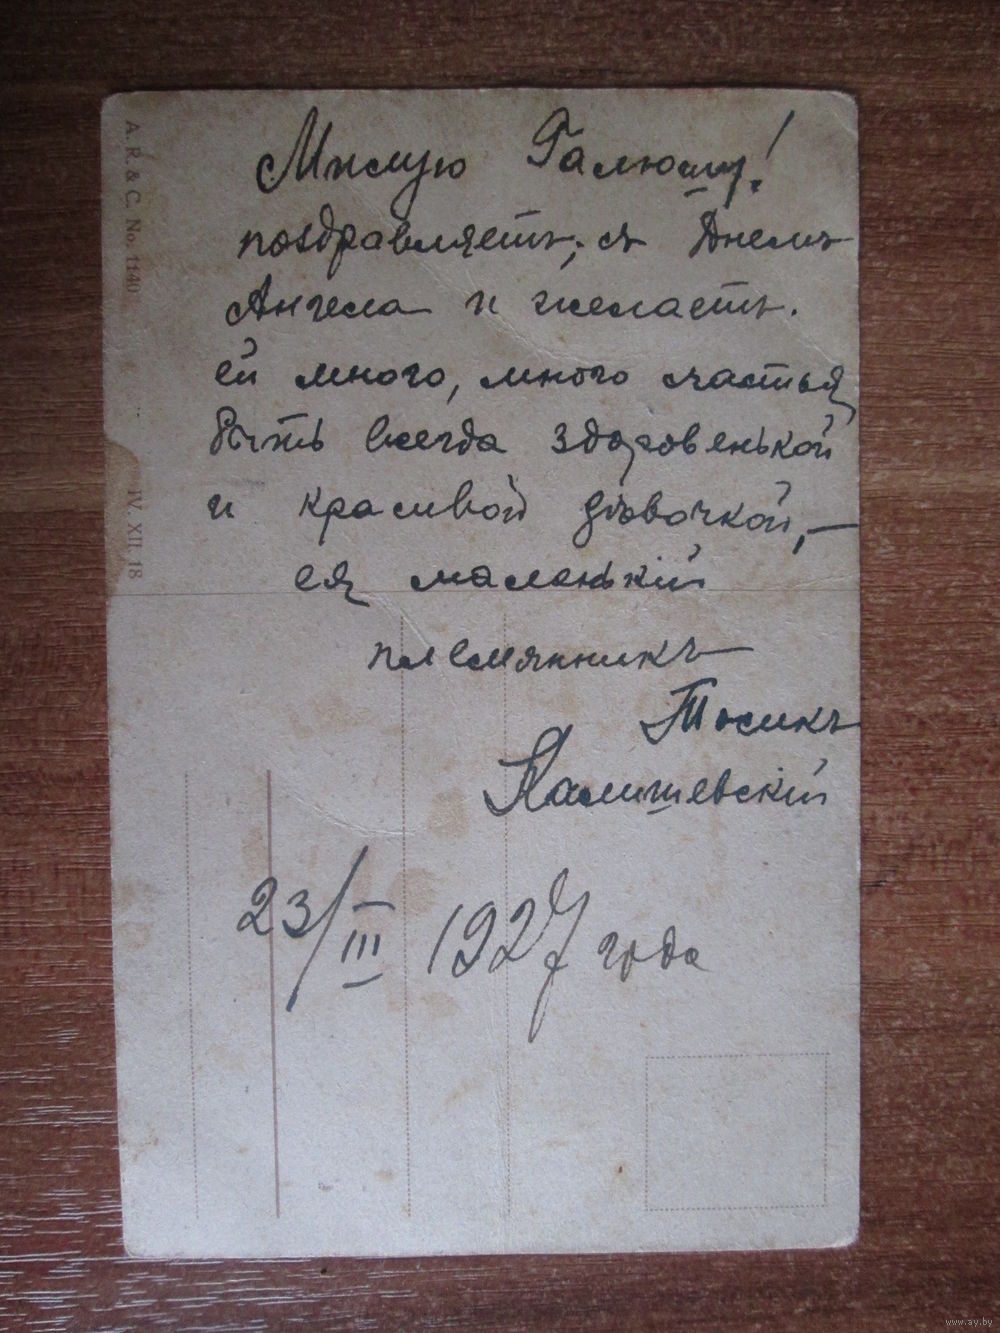 Милую Галюшу!
поздравляетъ, съ Днемъ
Ангела и желаетъ.
ей много, много счастья,
быть всегда здоровенькой
и красивой дѣвочкой,—
ея маленькій
племянникъ
Тосикъ
Калишевскій
23/III 1927 года
A. R. & C. No. 1140
IV. XII. 18
www.ay.by